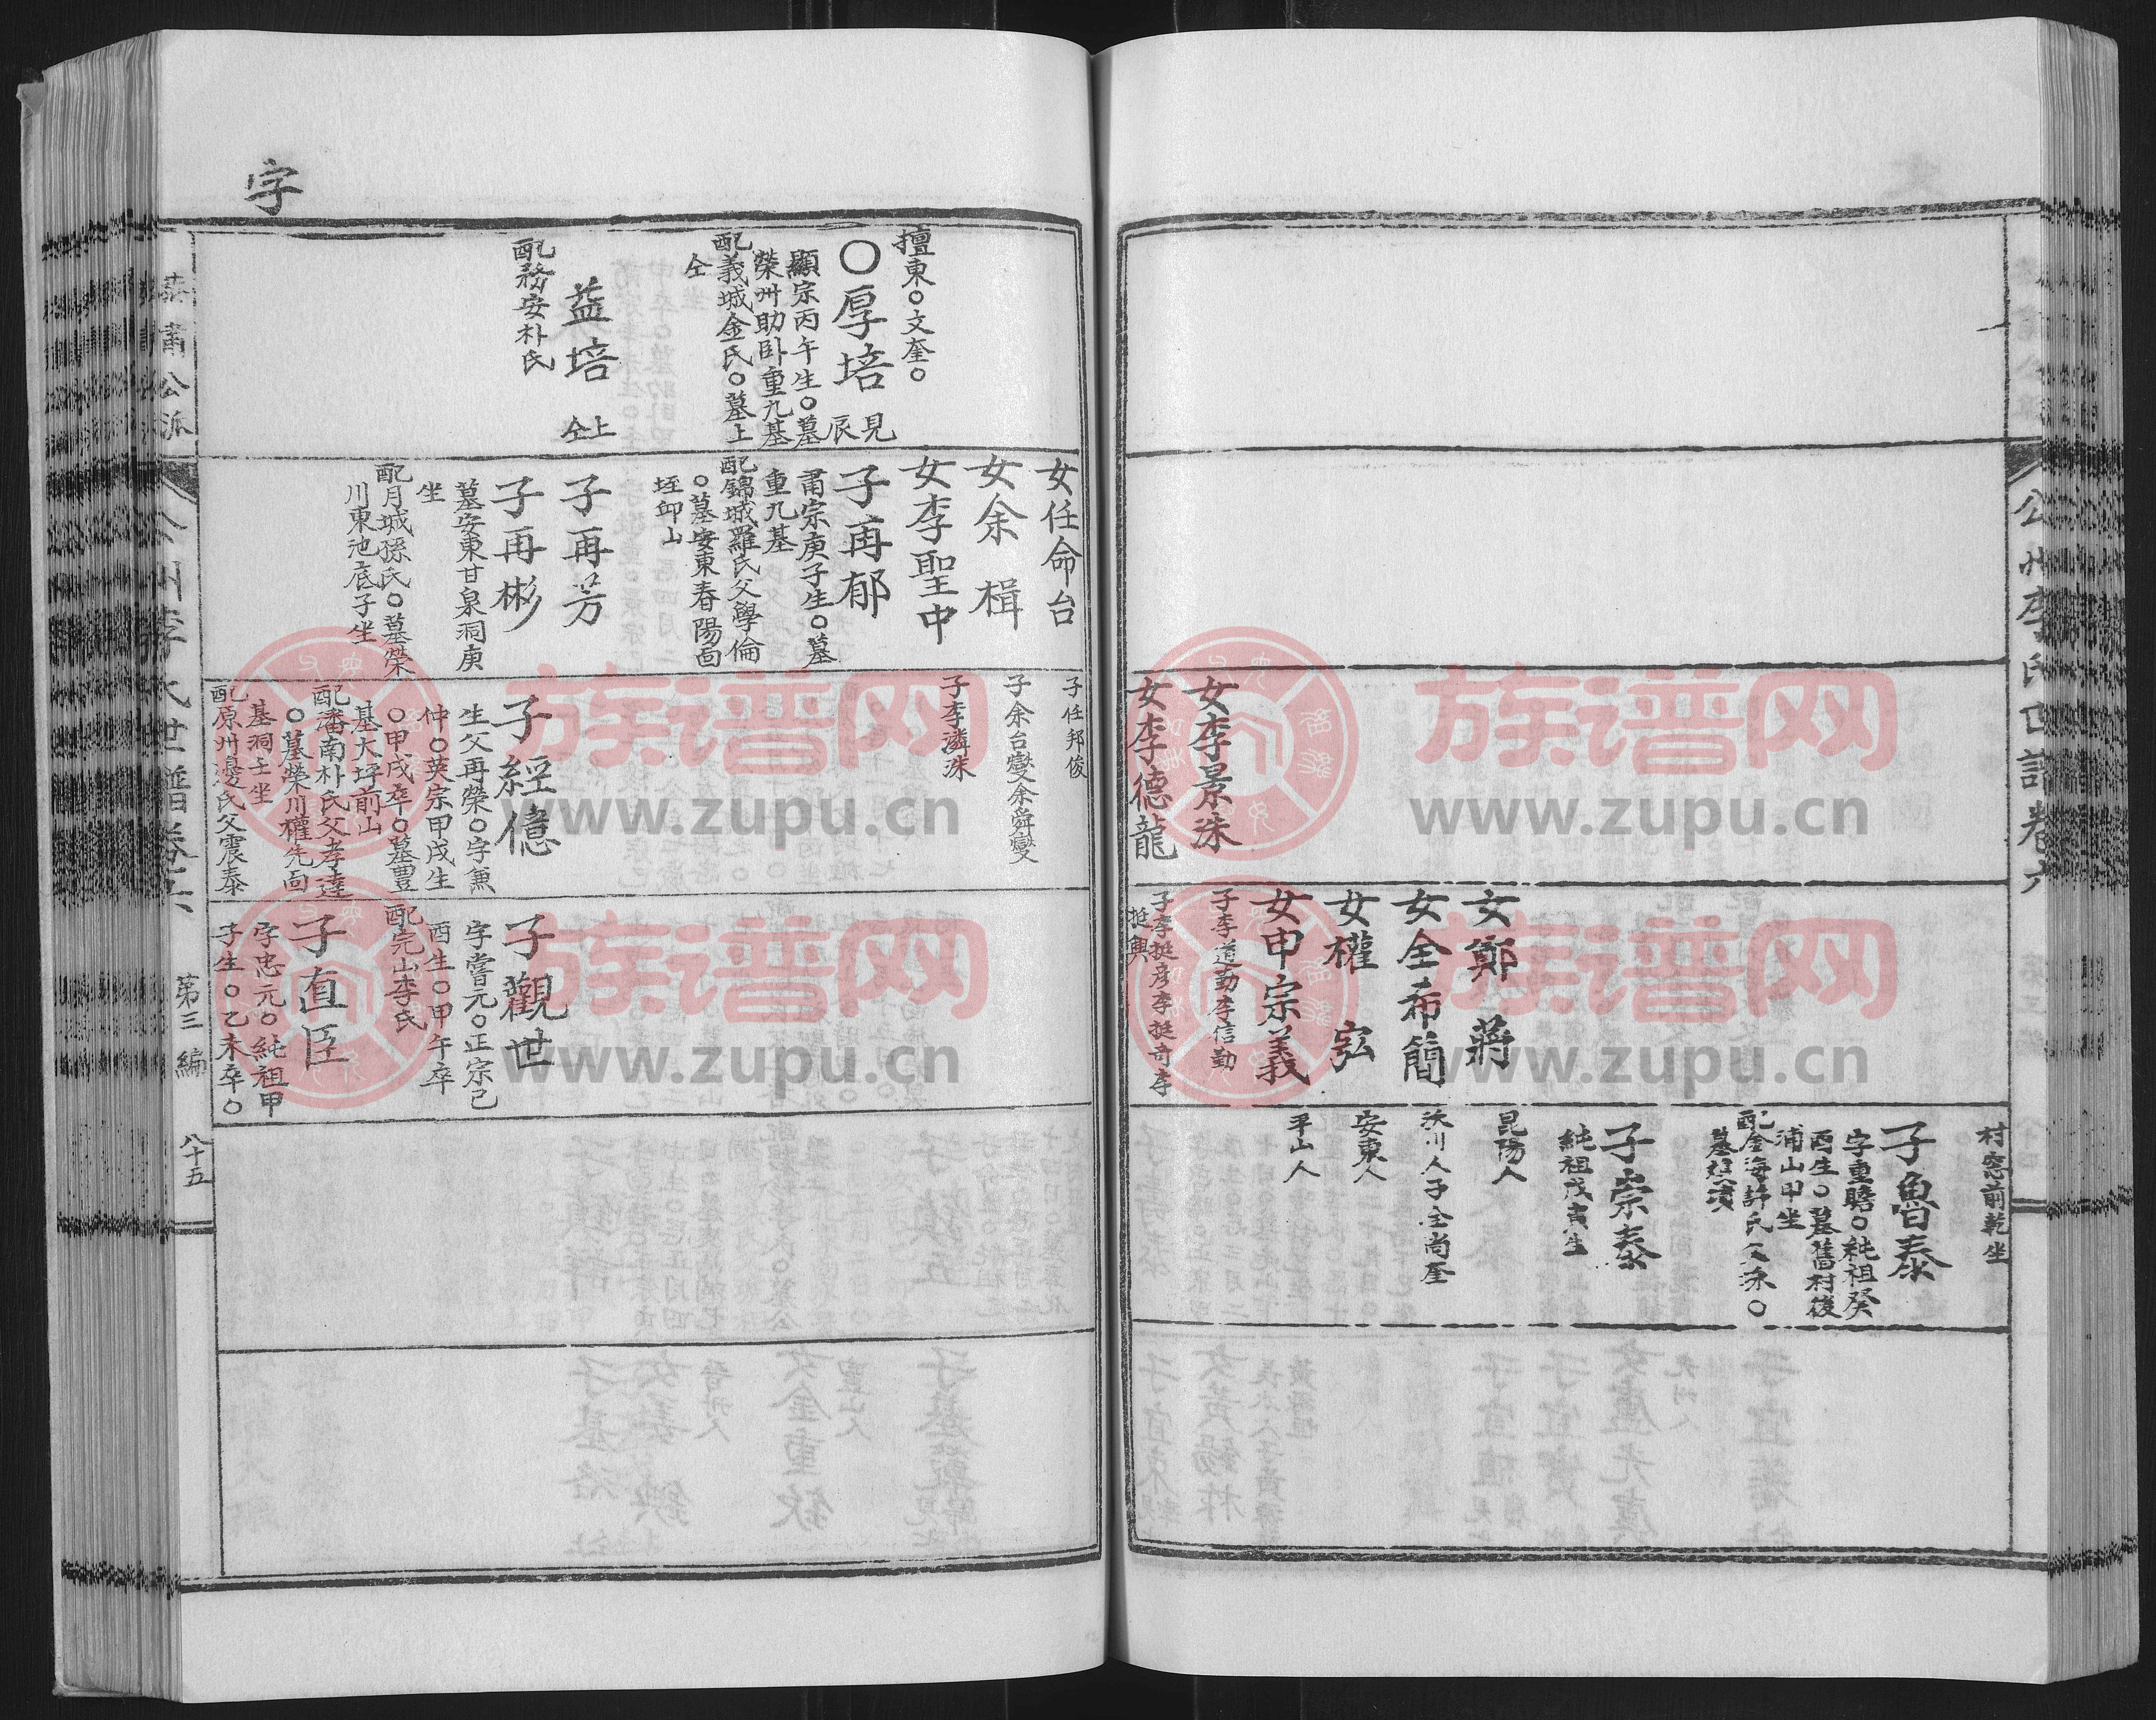 公州李氏世譜卷六
女李景洙
女李德龍
女鄭蔣
女全希簡
女權弘
女申宗義
子李道勤李信勤
子李挺彦李挺奇李
挺輿
村窓前乾坐
子魯泰
字重瞻○純祖癸
酉生○墓舊村後
浦山甲坐
配金海許氏父涤○
子宗泰
純祖戊寅生
昆陽人
沃川人子全尚奎
安東人
平山人
字
擅東○文奎○
○厚培
見
辰
顯宗丙午生○墓
榮州助卧重九基
配義城金氏○墓上
仝
益培
上
仝
配務安朴氏
女任命台
女余楫
女李聖中
子再郁
肅宗庚子生○墓
重九基
配錦城羅氏父學倫
○墓安東春陽面
子再芳
子再彬
墓安東甘泉洞庚
坐
配月城孫氏○墓榮
川東池底子坐
子任邦俊
子余台燮余舜燮
子李潾洙
子經億
生父再榮○字兼
仲○英宗甲戌生
○甲戌卒○墓豊
基大坪前山
配潘南朴氏父孝達
○墓榮川權先面
基洞壬坐
配原州邊氏父震泰
子觀世
字嘗元○正宗己
酉生○甲午卒
配完山李氏
子直臣
字忠元○純祖甲
子生○乙未卒○
公派
公州李氏世譜卷之六
第三編
八十五
族谱网
www.zupu.cn
族谱网
www.zupu.cn
族谱网
www.zupu.cn
族谱网
www.zupu.cn